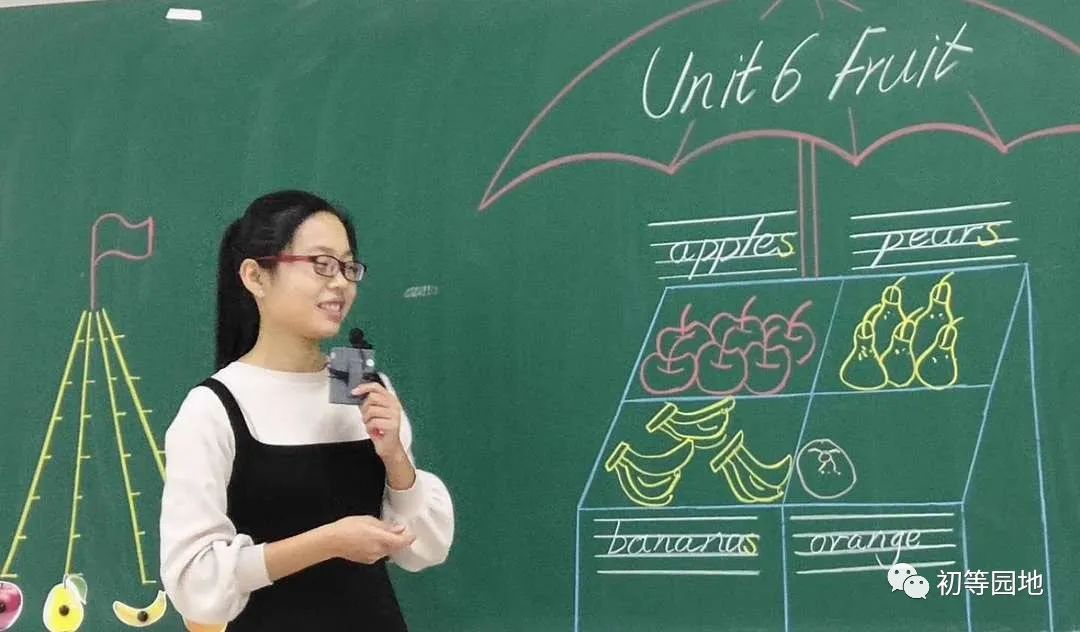 Unit 6 Fruit
apples
pears
bananas
orange
初等园地